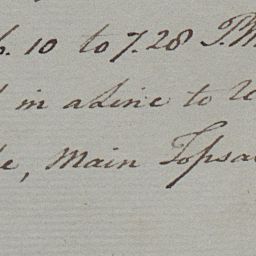 10 to 7.28 P.M
in a Line to
, Main Topsa